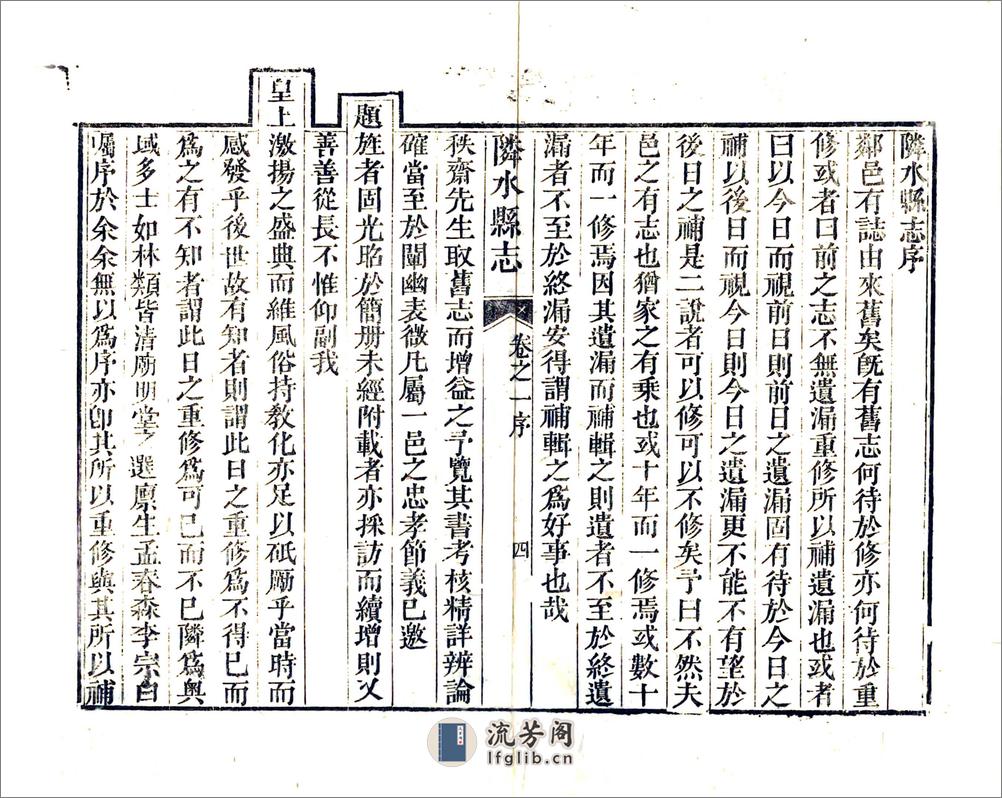 隣水縣志序
鄰邑有誌由來舊矣旣有舊志何待於修亦何待於重
修或者曰前之志不無遺漏重修所以補遺漏也或者
曰以今日而視前日則前日之遺漏固有待於今日之
補以後日而視今日則今日之遺漏更不能不有望於
後日之補是二說者可以修可以不修矣予曰不然夫
邑之有志也猶家之有乘也或十年而一修焉或數十
年而一修焉因其遺漏而補輯之則遺者不至於終遺
漏者不至於終漏安得謂補輯之爲好事也哉
隣水縣志 卷之一序 四
秩齋先生取舊志而增益之予覽其書考核精詳辨論
確當至於闡幽表微凡屬一邑之忠孝節義已邀
題旌者固光昭於簡册未經附載者亦採訪而續增則又
善善從長不惟仰副我
皇上激揚之盛典而維風俗持敎化亦足以砥勵乎當時而
感發乎後世故有知者則謂此日之重修爲不得已而
爲之有不知者謂此日之重修爲可已而不已隣爲輿
域多士如林類皆清廟明堂之選廪生孟春森李宗白
囑序於余余無以爲序亦卽其所以重修與其所以補
流芳阁
lfglib.cn